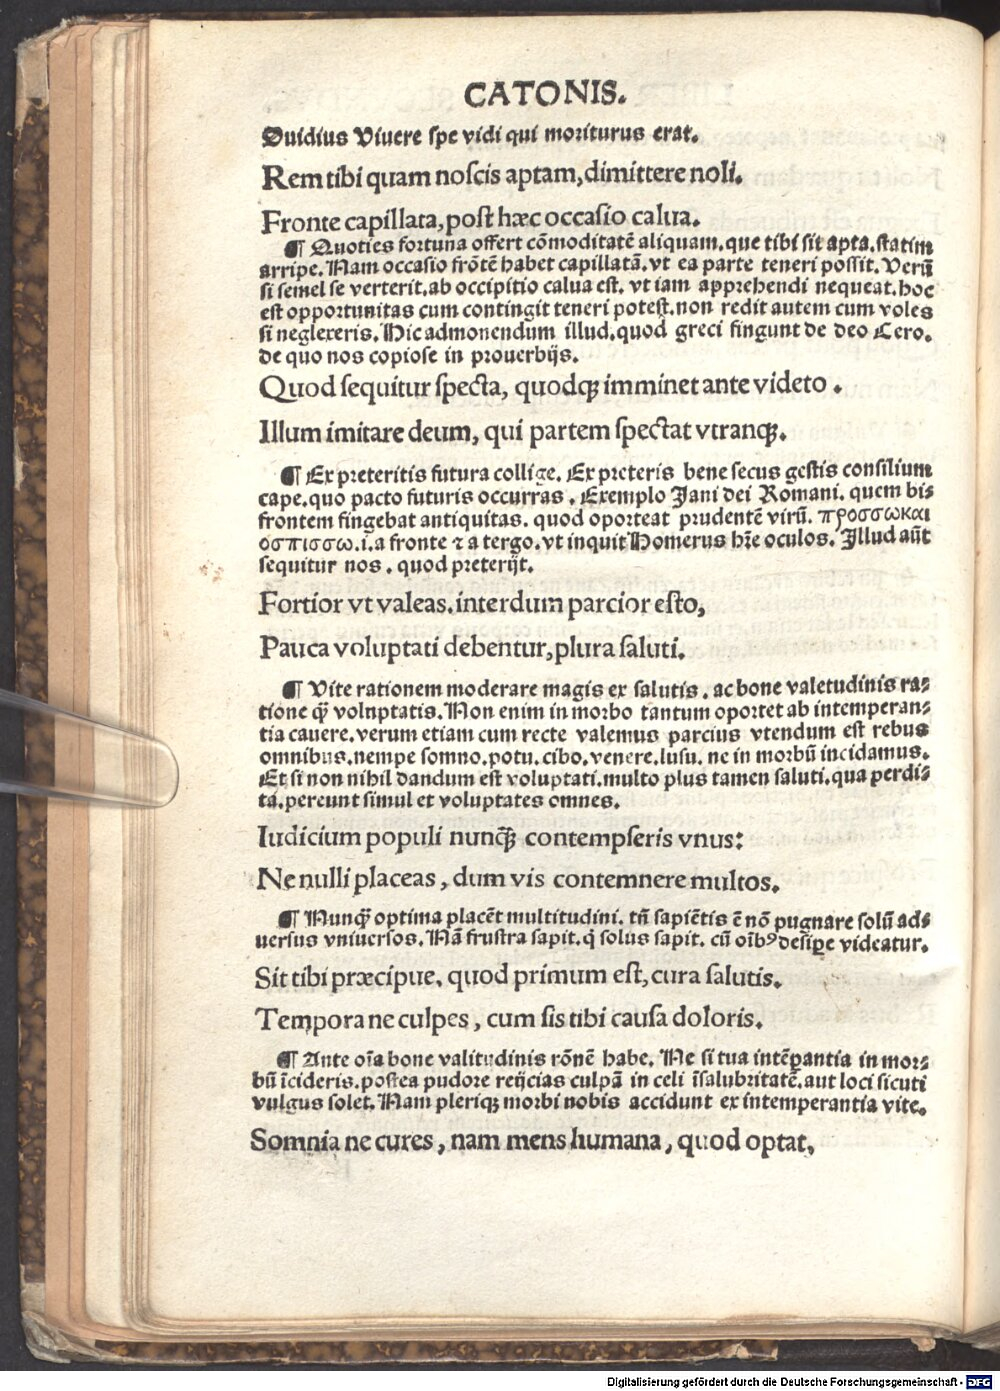 CATONIS.
Ouidius Viuere spe vidi qui moriturus erat.
Rem tibi quam noscis aptam, dimittere noli.
Fronte capillata, post hæc occasio calua.
¶ Quoties fortuna offert cōmoditatē aliquam. que tibi sit apta. statim
arripe. Nam occasio frōtē habet capillatā. vt ea parte teneri possit. Verū
si semel se verterit. ab occipitio calua est. vt iam apprehendi nequeat. hoc
est opportunitas cum contingit teneri potest. non redit autem cum voles
si neglexeris. Hic admonendum illud. quod greci fingunt de deo Cero.
de quo nos copiose in prouerbijs.
Quod sequitur specta, quodqꝫ imminet ante videto .
Illum imitare deum, qui partem spectat vtranqꝫ.
¶ Ex preteritis futura collige. Ex preteris bene secus gestis consilium
cape. quo pacto futuris occurras . Exemplo Jani dei Romani. quem bi⸗
frontem fingebat antiquitas. quod oporteat prudentē virū. προσσωκαι
οσπισσω. i. a fronte ⁊ a tergo. vt inquit Homerus hr̄e oculos. Illud aūt
sequitur nos . quod preterijt.
Fortior vt valeas. interdum parcior esto,
Pauca voluptati debentur, plura saluti.
¶ Vite rationem moderare magis ex salutis . ac bone valetudinis ra⸗
tione qꝫ̄ volnptatis. Non enim in morbo tantum oportet ab intemperan⸗
tia cauere. verum etiam cum recte valemus parcius vtendum est rebus
omnibus. nempe somno. potu. cibo. venere. lusu. ne in morbū incidamus.
Et si non nihil dandum est voluptati. multo plus tamen saluti. qua perdi⸗
ta. pereunt simul et voluptates omnes.
Iudicium populi nunqꝫ̄ contempseris vnus:
Ne nulli placeas , dum vis contemnere multos.
¶ Nunqꝫ̄ optima placēt multitudini. tn̄ sapiētis ē nō pugnare solū ad⸗
uersus vniuersos. Nā frustra sapit. q̇ solus sapit. cū oībꝰ desipe videatur.
Sit tibi præcipue. quod primum est, cura salutis.
Tempora ne culpes , cum sis tibi causa doloris.
¶ Ante oīa bone valitudinis rōnē habe. Ne si tua intēꝑantia in mor⸗
bū īcideris. postea pudore reijcias culpā in celi īsalubritatē. aut loci sicuti
vulgus solet. Nam pleriqꝫ morbi nobis accidunt ex intemperantia vite.
Somnia ne cures , nam mens humana , quod optat,
Digitalisierung gefördert durch die Deutsche Forschungsgemeinschaft - DFG